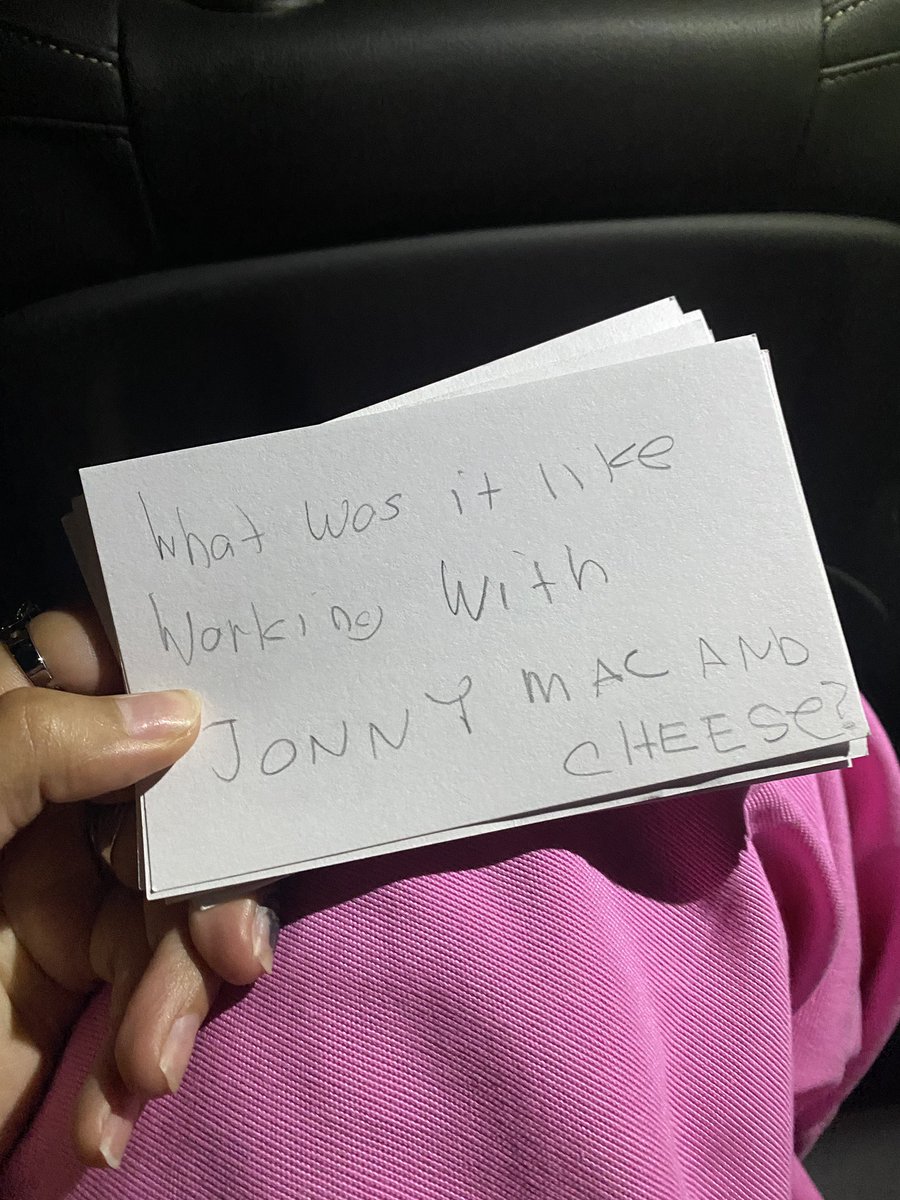 What was it like
Working With
JONNY MAC AND
CHEESE?